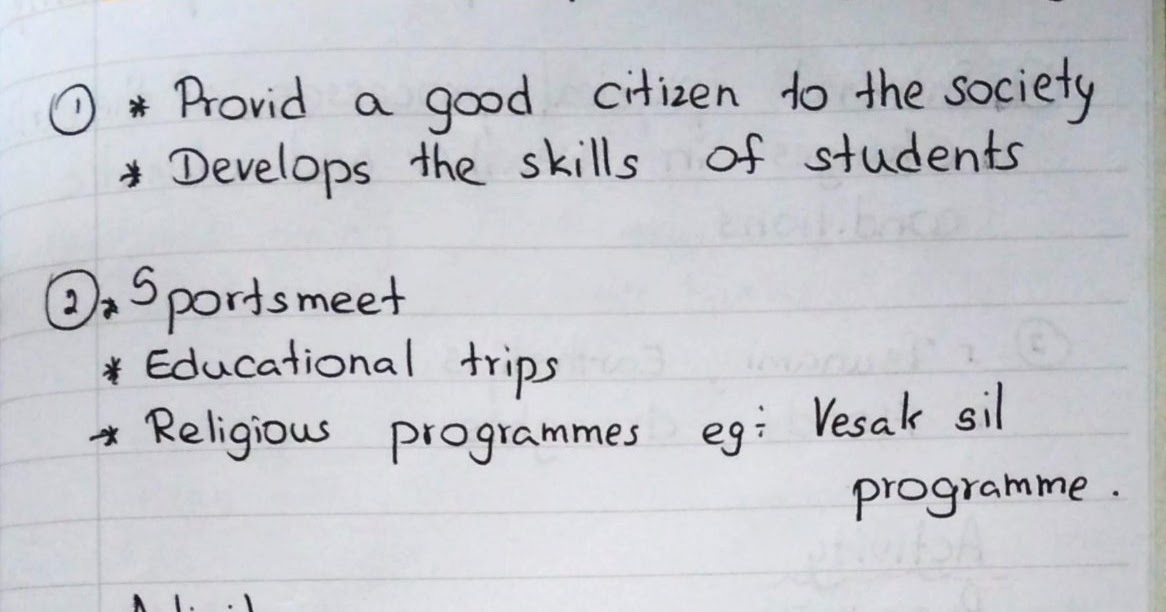 ① * Provid a good citizen to the society
* Develops the skills of students
② * Sportsmeet
* Educational trips
* Religious programmes eg: Vesak sil
programme.